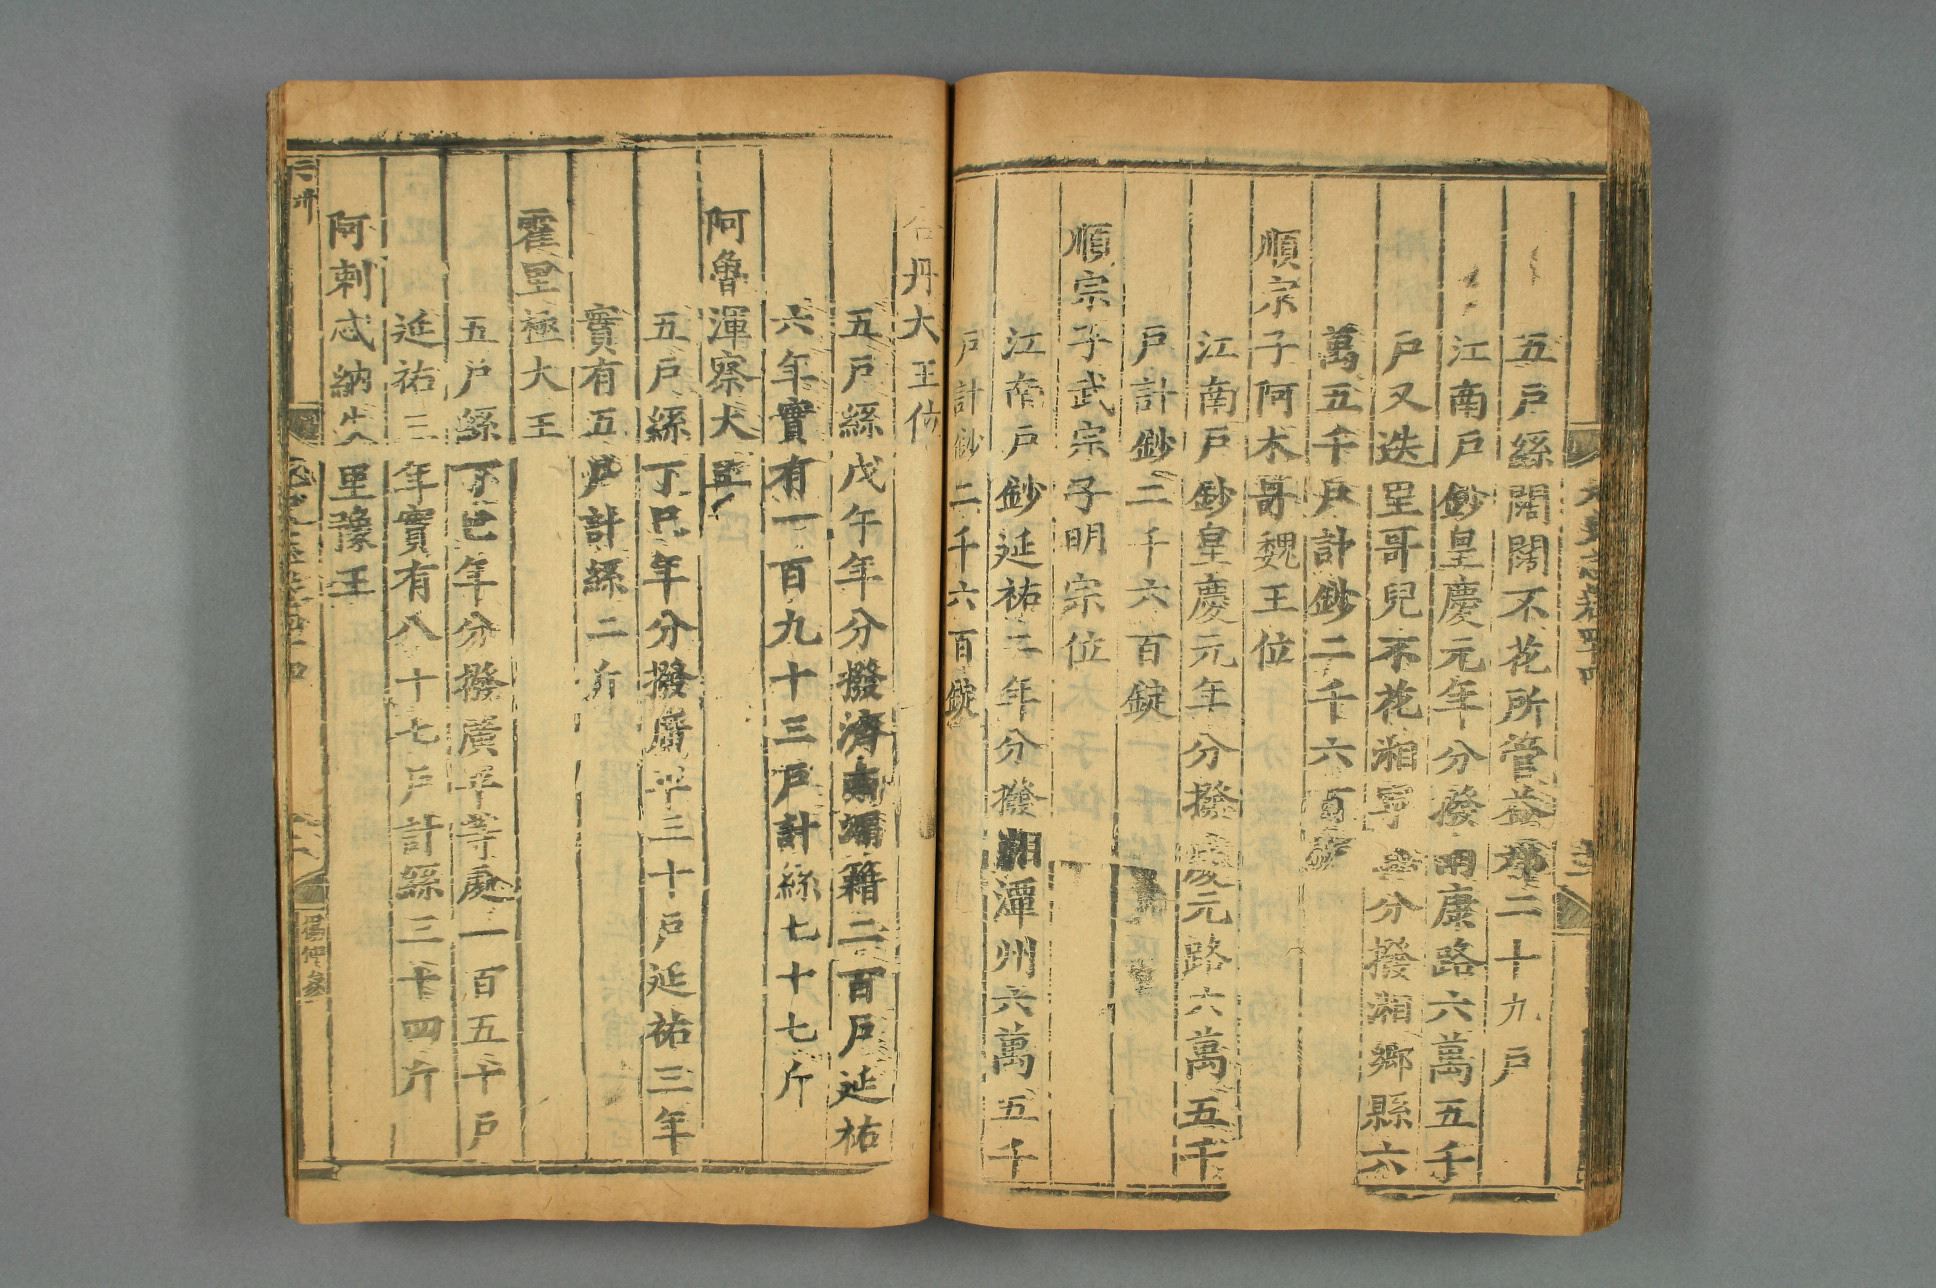 五戶絲闊闊不花所管益都二十九戶
江南戶鈔皇慶元年分撥南康路六萬五千
戶又迭里哥兒不花湘寧王分撥湘鄉縣六
萬五千戶計鈔二千六百
順宗子阿木哥魏王位
江南戶鈔皇慶元年分撥慶元路六萬五千
戶計鈔二千六百錠
順宗子武宗子明宗位
江南戶鈔延祐二年分撥湘潭州六萬五千
戶計鈔二千六百錠
合丹大王位
五戶絲戊午年分撥濟南漏籍二百戶延祐
六年實有一百九十三戶計絲七十七斤
阿魯渾察大王
五戶絲丁巳年分撥廣平三十戶延祐三年
實有五戶計絲二斤
霍里極大王
五戶絲丁巳年分撥廣平等處一百五十戶
延祐三年實有八十七戶計絲三十四斤
阿剌忒納失里豫王